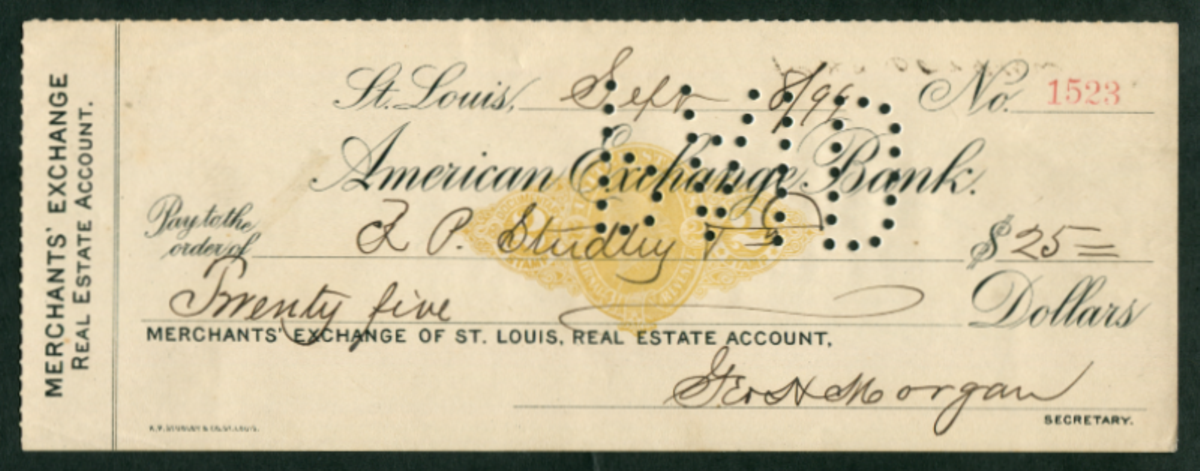 MERCHANTS' EXCHANGE
REAL ESTATE ACCOUNT.
St. Louis, Sept 8/99 No. 1523
American Exchange Bank.
Pay to the
order of R P. Studley $25=
Twenty five Dollars
MERCHANTS' EXCHANGE OF ST. LOUIS, REAL ESTATE ACCOUNT,
Geo H Morgan
SECRETARY.